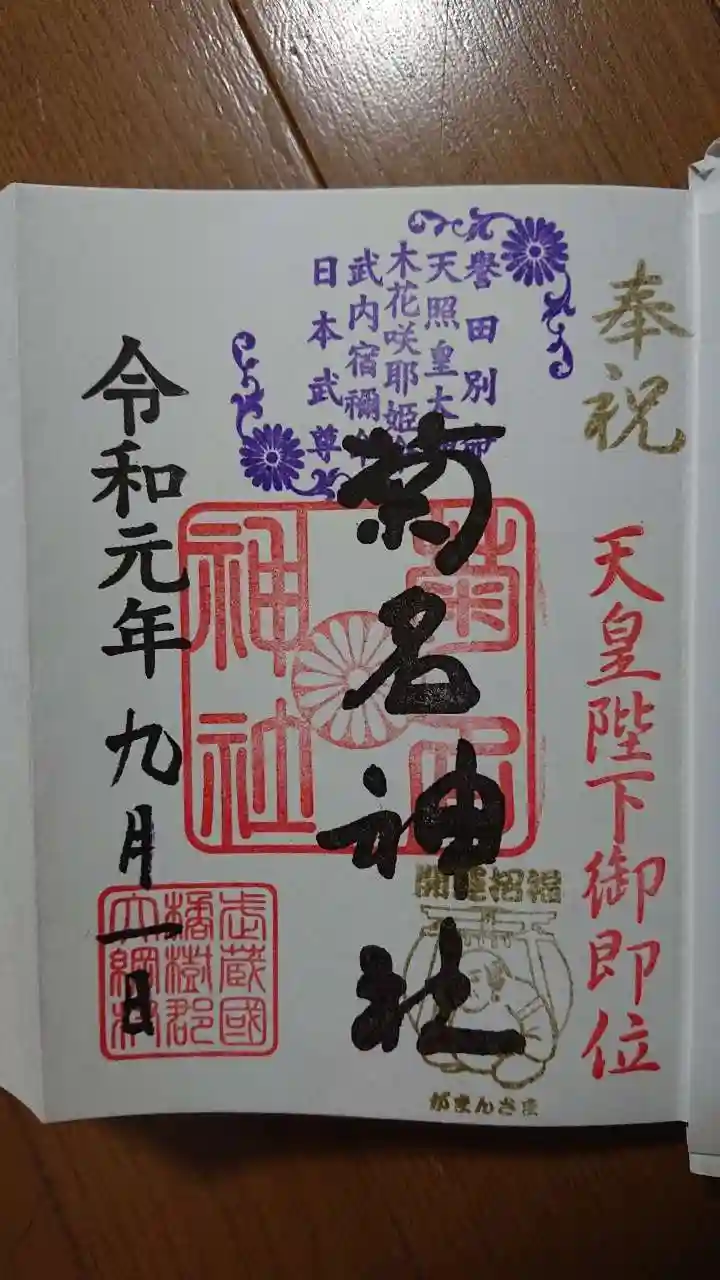 奉祝
天皇陛下御即位
誉田別命
天照皇大神
木花咲耶姫命
武内宿禰命
日本武尊
菊名神社
菊名神社
開運招福
がまんさま
令和元年九月一日
武蔵國
橘樹郡
大綱村